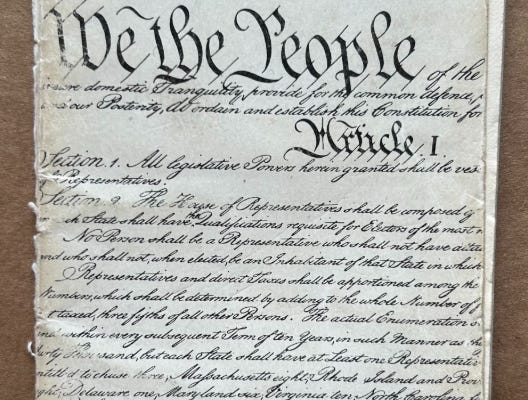 We the People of the
insure domestic Tranquility, provide for the common defence,
and our Posterity, do ordain and establish this Constitution for
Article I
Section. 1. All legislative Powers herein granted shall be ves
Representatives.
Section. 2. The House of Representatives shall be composed
ch State shall have the Qualifications requisite for Electors of the most
No Person shall be a Representative who shall not have attai
and who shall not, when elected, be an Inhabitant of that State in which
Representatives and direct Taxes shall be apportioned among the
Numbers, which shall be determined by adding to the whole Number of
ot taxed, three fifths of all other Persons. The actual Enumeration
and within every subsequent Term of ten Years, in such Manner as the
hirty Thousand, but each State shall have at Least one Representati
ntitled to chuse three, Massachusetts eight, Rhode Island and Prov
ight, Delaware one, Maryland six, Virginia ten, North Carolina